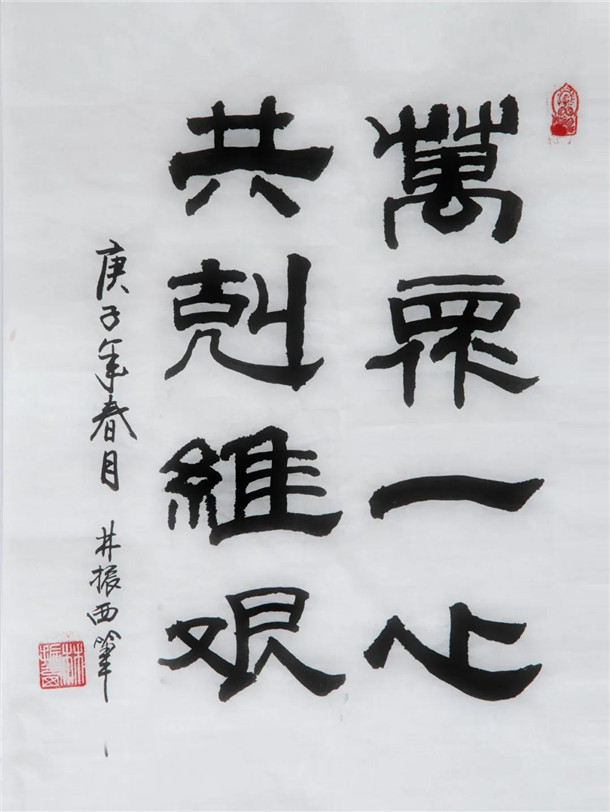 萬眾一心
共剋維艰
庚子年春月 井振西筆